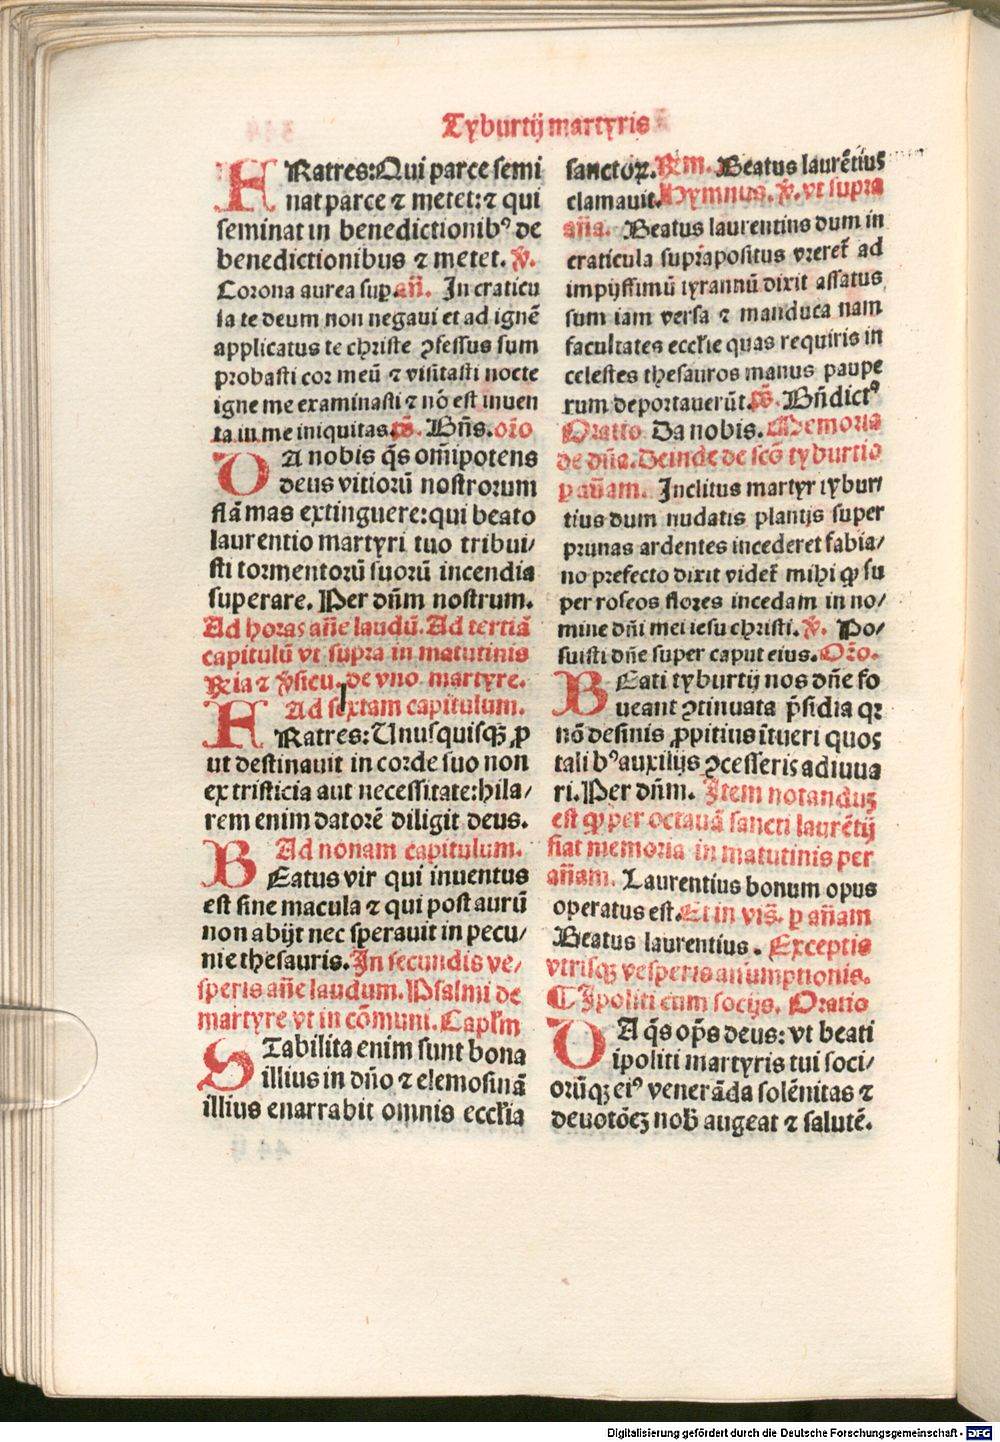 Tyburtij martyris
FRatres:Qui parce semi
nat parce ⁊ metet:⁊ qui
seminat in benedictionibꝰ de
benedictionibus ⁊ metet. v̄.
Corona aurea sup. añ. In craticu
la te deum non negaui et ad ignē
applicatus te christe ꝯfessus sum
probasti cor meū ⁊ visitasti nocte
igne me examinasti ⁊ nō est inuen
ta in me iniquitas. p̄s. Bn̄s. or̄o
DA nobis q̄s om̄ipotens
deus vitiorū nostrorum
flāmas extinguere:qui beato
laurentio martyri tuo tribui/
sti tormentorū suorū incendia
superare. Per dn̄m nostrum.
Ad horas añe laudū. Ad tertiā
capitulū vt supra in matutinis
℞ia ⁊ v̄sicu. de vno martyre.
Ad sextam capitulum.
FRatres: Unusquisqꝫ ꝓ
ut destinauit in corde suo non
ex tristicia aut necessitate:hila/
rem enim datorē diligit deus.
Ad nonam capitulum.
BEatus vir qui inuentus
est sine macula ⁊ qui post aurū
non abijt nec sperauit in pecu/
nie thesauris. In secundis ve/
speris añe laudum. Psalmi de
martyre vt in cōmuni. Capl'm
STabilita enim sunt bona
illius in dn̄o ⁊ elemosinā
illius enarrabit omnis eccl'ia
sanctoꝝ. ℞m. Beatus laurētius
clamauit. Hymnus. v̄. vt supra
añā. Beatus laurentius dum in
craticula suprapositus vreret̄ ad
impijssimū tyrannū dixit assatus
sum iam versa ⁊ manduca nam
facultates eccl'ie quas requiris in
celestes thesauros manus paupe
rum deportauerūt. p̄s. Bn̄dictꝰ
Oratio Da nobis. Memoria
de dn̄a. Deinde de scō tyburtio
ꝑ añam. Inclitus martyr tybur
tius dum nudatis plantis super
prunas ardentes incederet fabia/
no prefecto dixit videt̄ mihi ꝙ su
per roseos flores incedam in no/
mine dn̄i mei iesu christi. v̄. Po/
suisti dn̄e super caput eius. Or̄o.
BEati tyburtij nos dn̄e fo
ueant ꝯtinuata p̄sidia qꝛ
nō desinis ꝓpitius ītueri quos
talibꝰ auxilijs ꝯcesseris adiuua
ri. Per dn̄m. Item notanduꝫ
est ꝙ per octauā sancti laurētij
fiat memoria in matutinis per
añam. Laurentius bonum opus
operatus est. Et in vis̄. ꝑ añam
Beatus laurentius. Exceptis
vtrisqꝫ vesperis assumptionis.
¶ Ipoliti cum socijs. Oratio
DA q̄s op̄s deus: vt beati
ipoliti martyris tui soci/
orūqꝫ eiꝰ venerāda solēnitas ⁊
deuotōeꝫ nob̄ augeat ⁊ salutē.
Digitalisierung gefördert durch die Deutsche Forschungsgemeinschaft - DFG